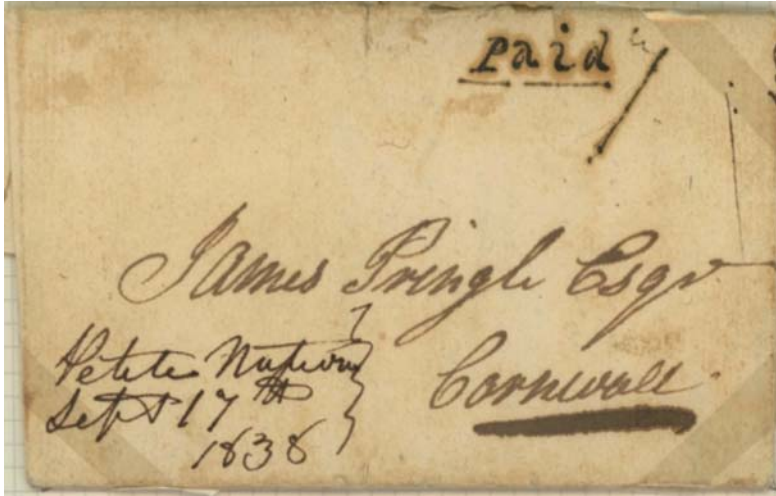 Paid
James Pringle Esqr
Cornwall
Petite Nation
Sept 17th
1838